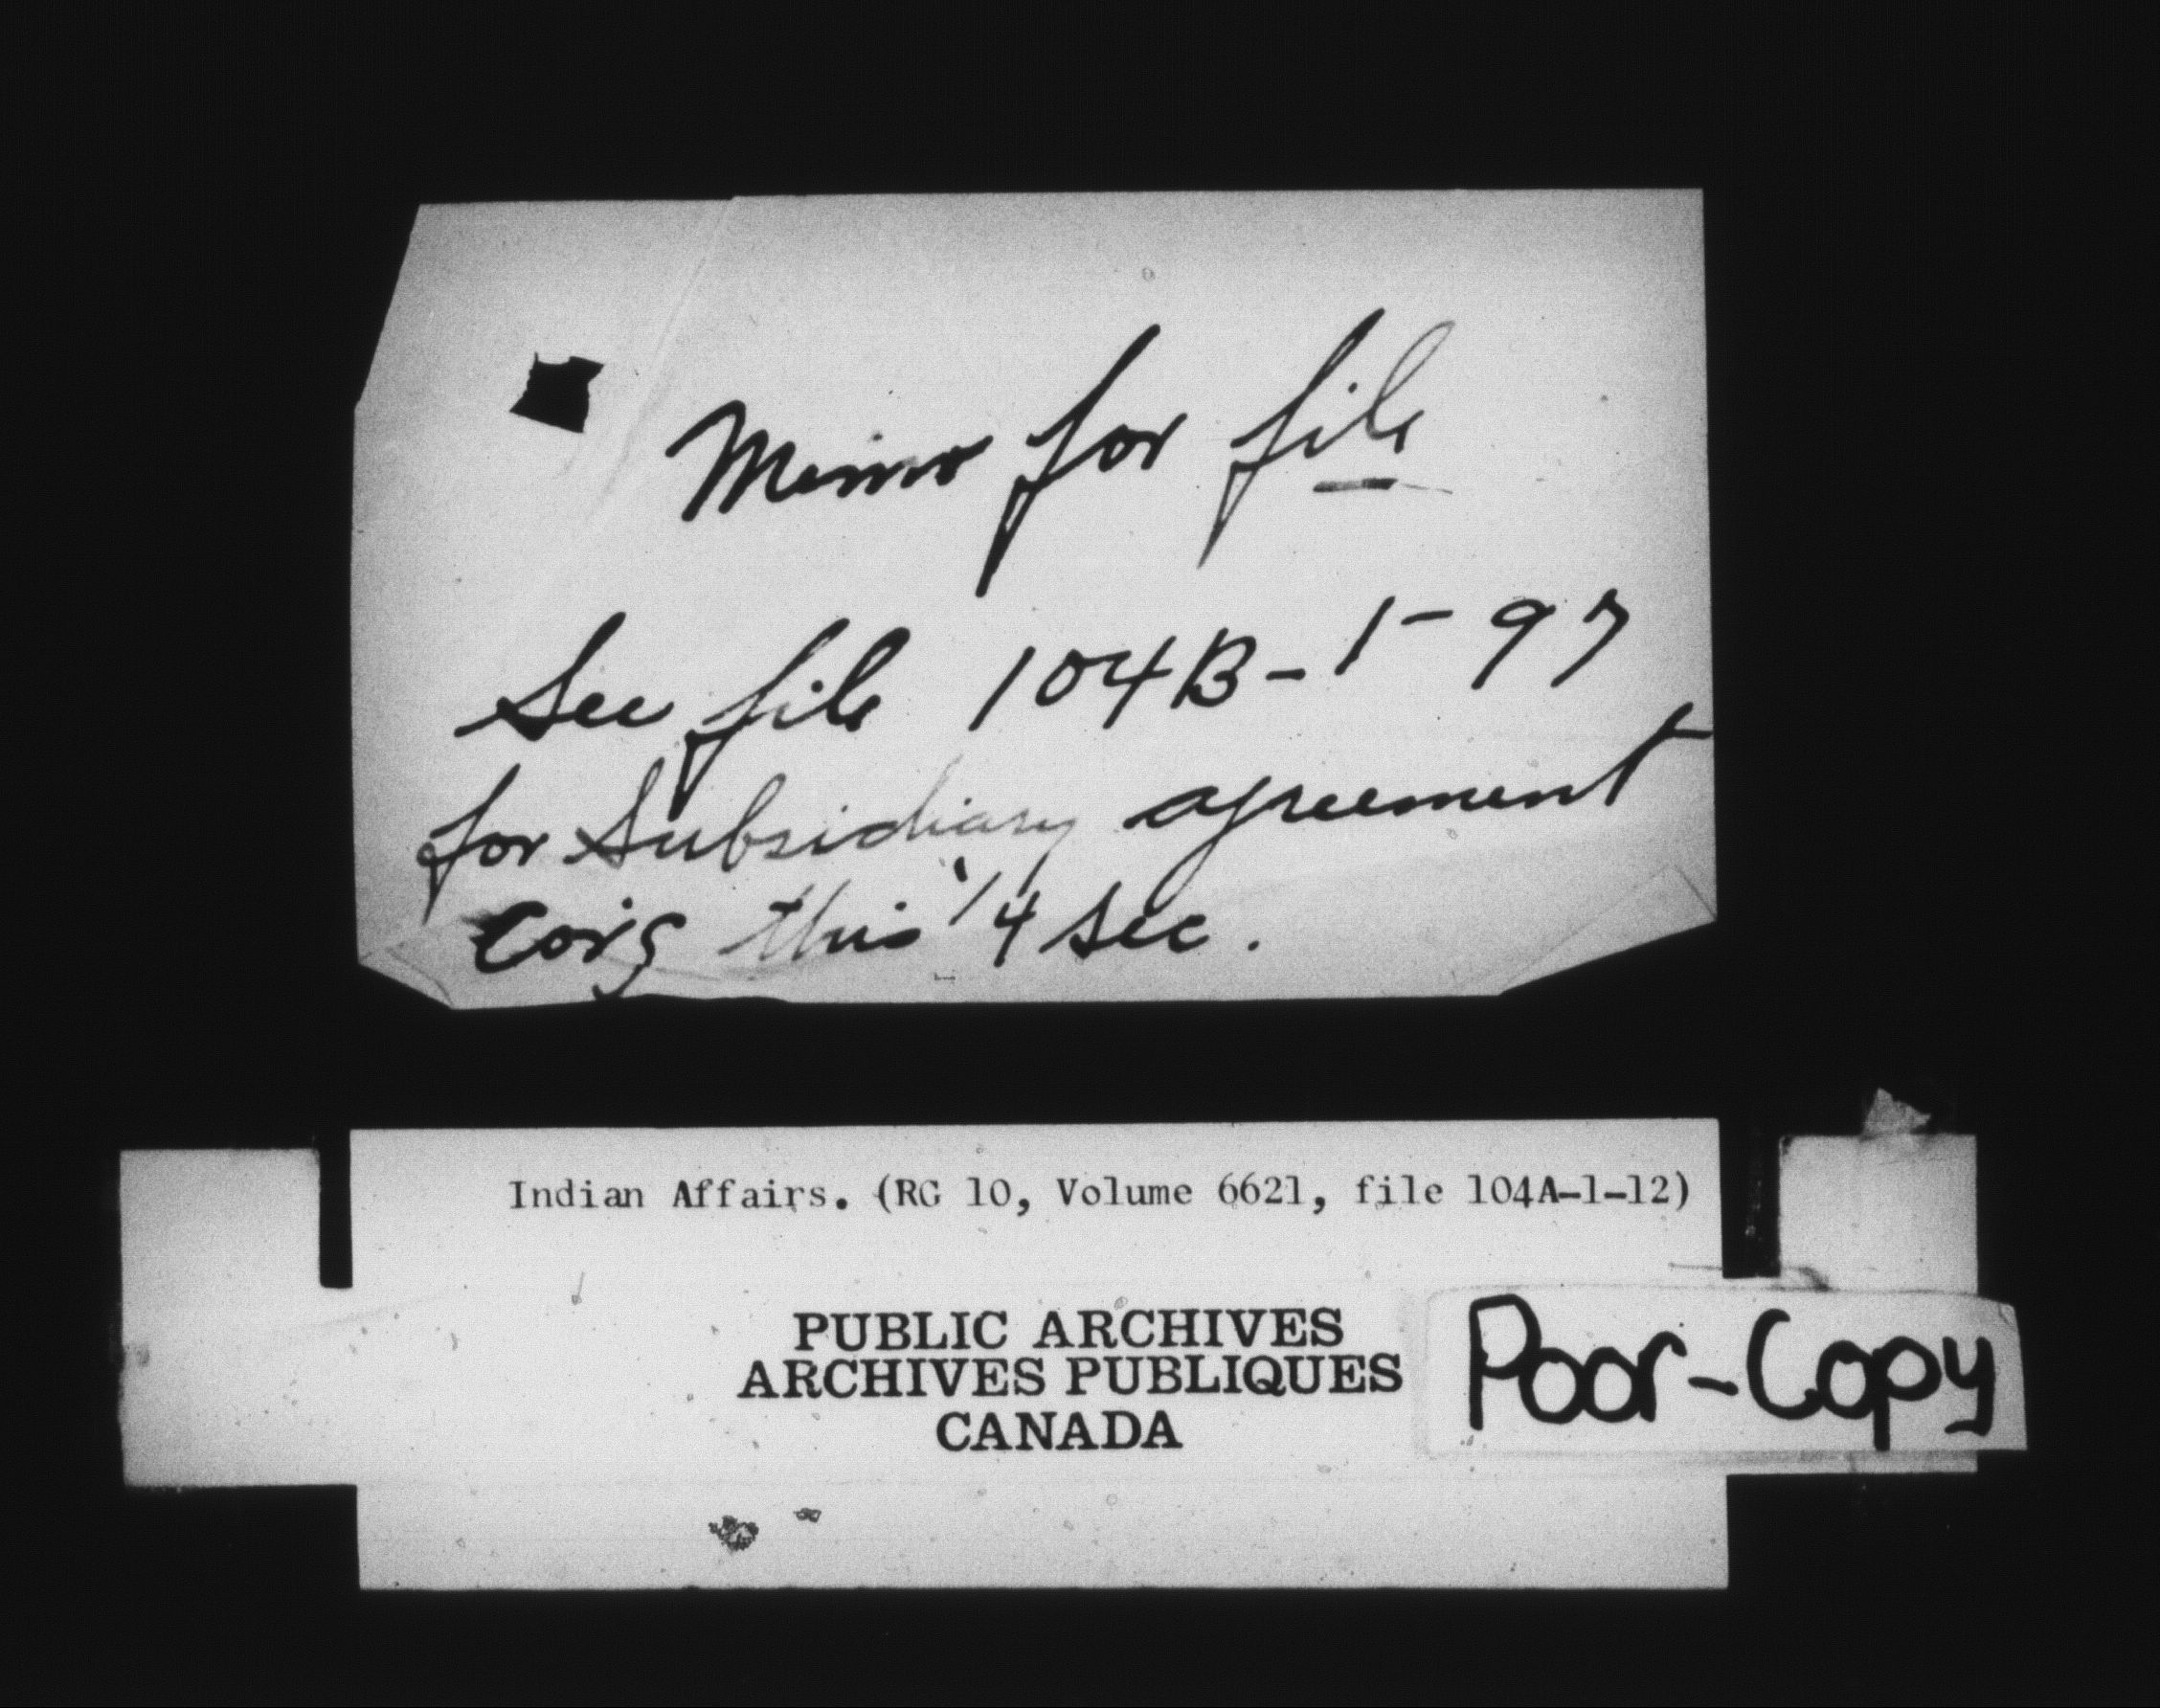 Memo for file
See file 104B-1-97
for Subsidiary agreement
cov'g this 1/4 sec.
Indian Affairs. (RG 10, Volume 6621, file 104A-1-12)
PUBLIC ARCHIVES
ARCHIVES PUBLIQUES
CANADA
Poor-Copy